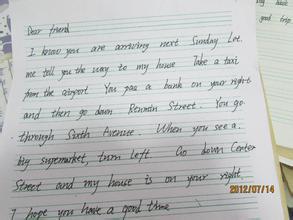 Dear friend
I know you are arriving next Sunday Let
me tell you the way to my house Take a taxi
from the airport You pass a bank on your right
and then go down Street. You go
through Sixth Avenue. When you see a
big supermarket, turn left. Go down Center
Street and my house is on your right,
I hope you have a good time
2012/07/14
good trip